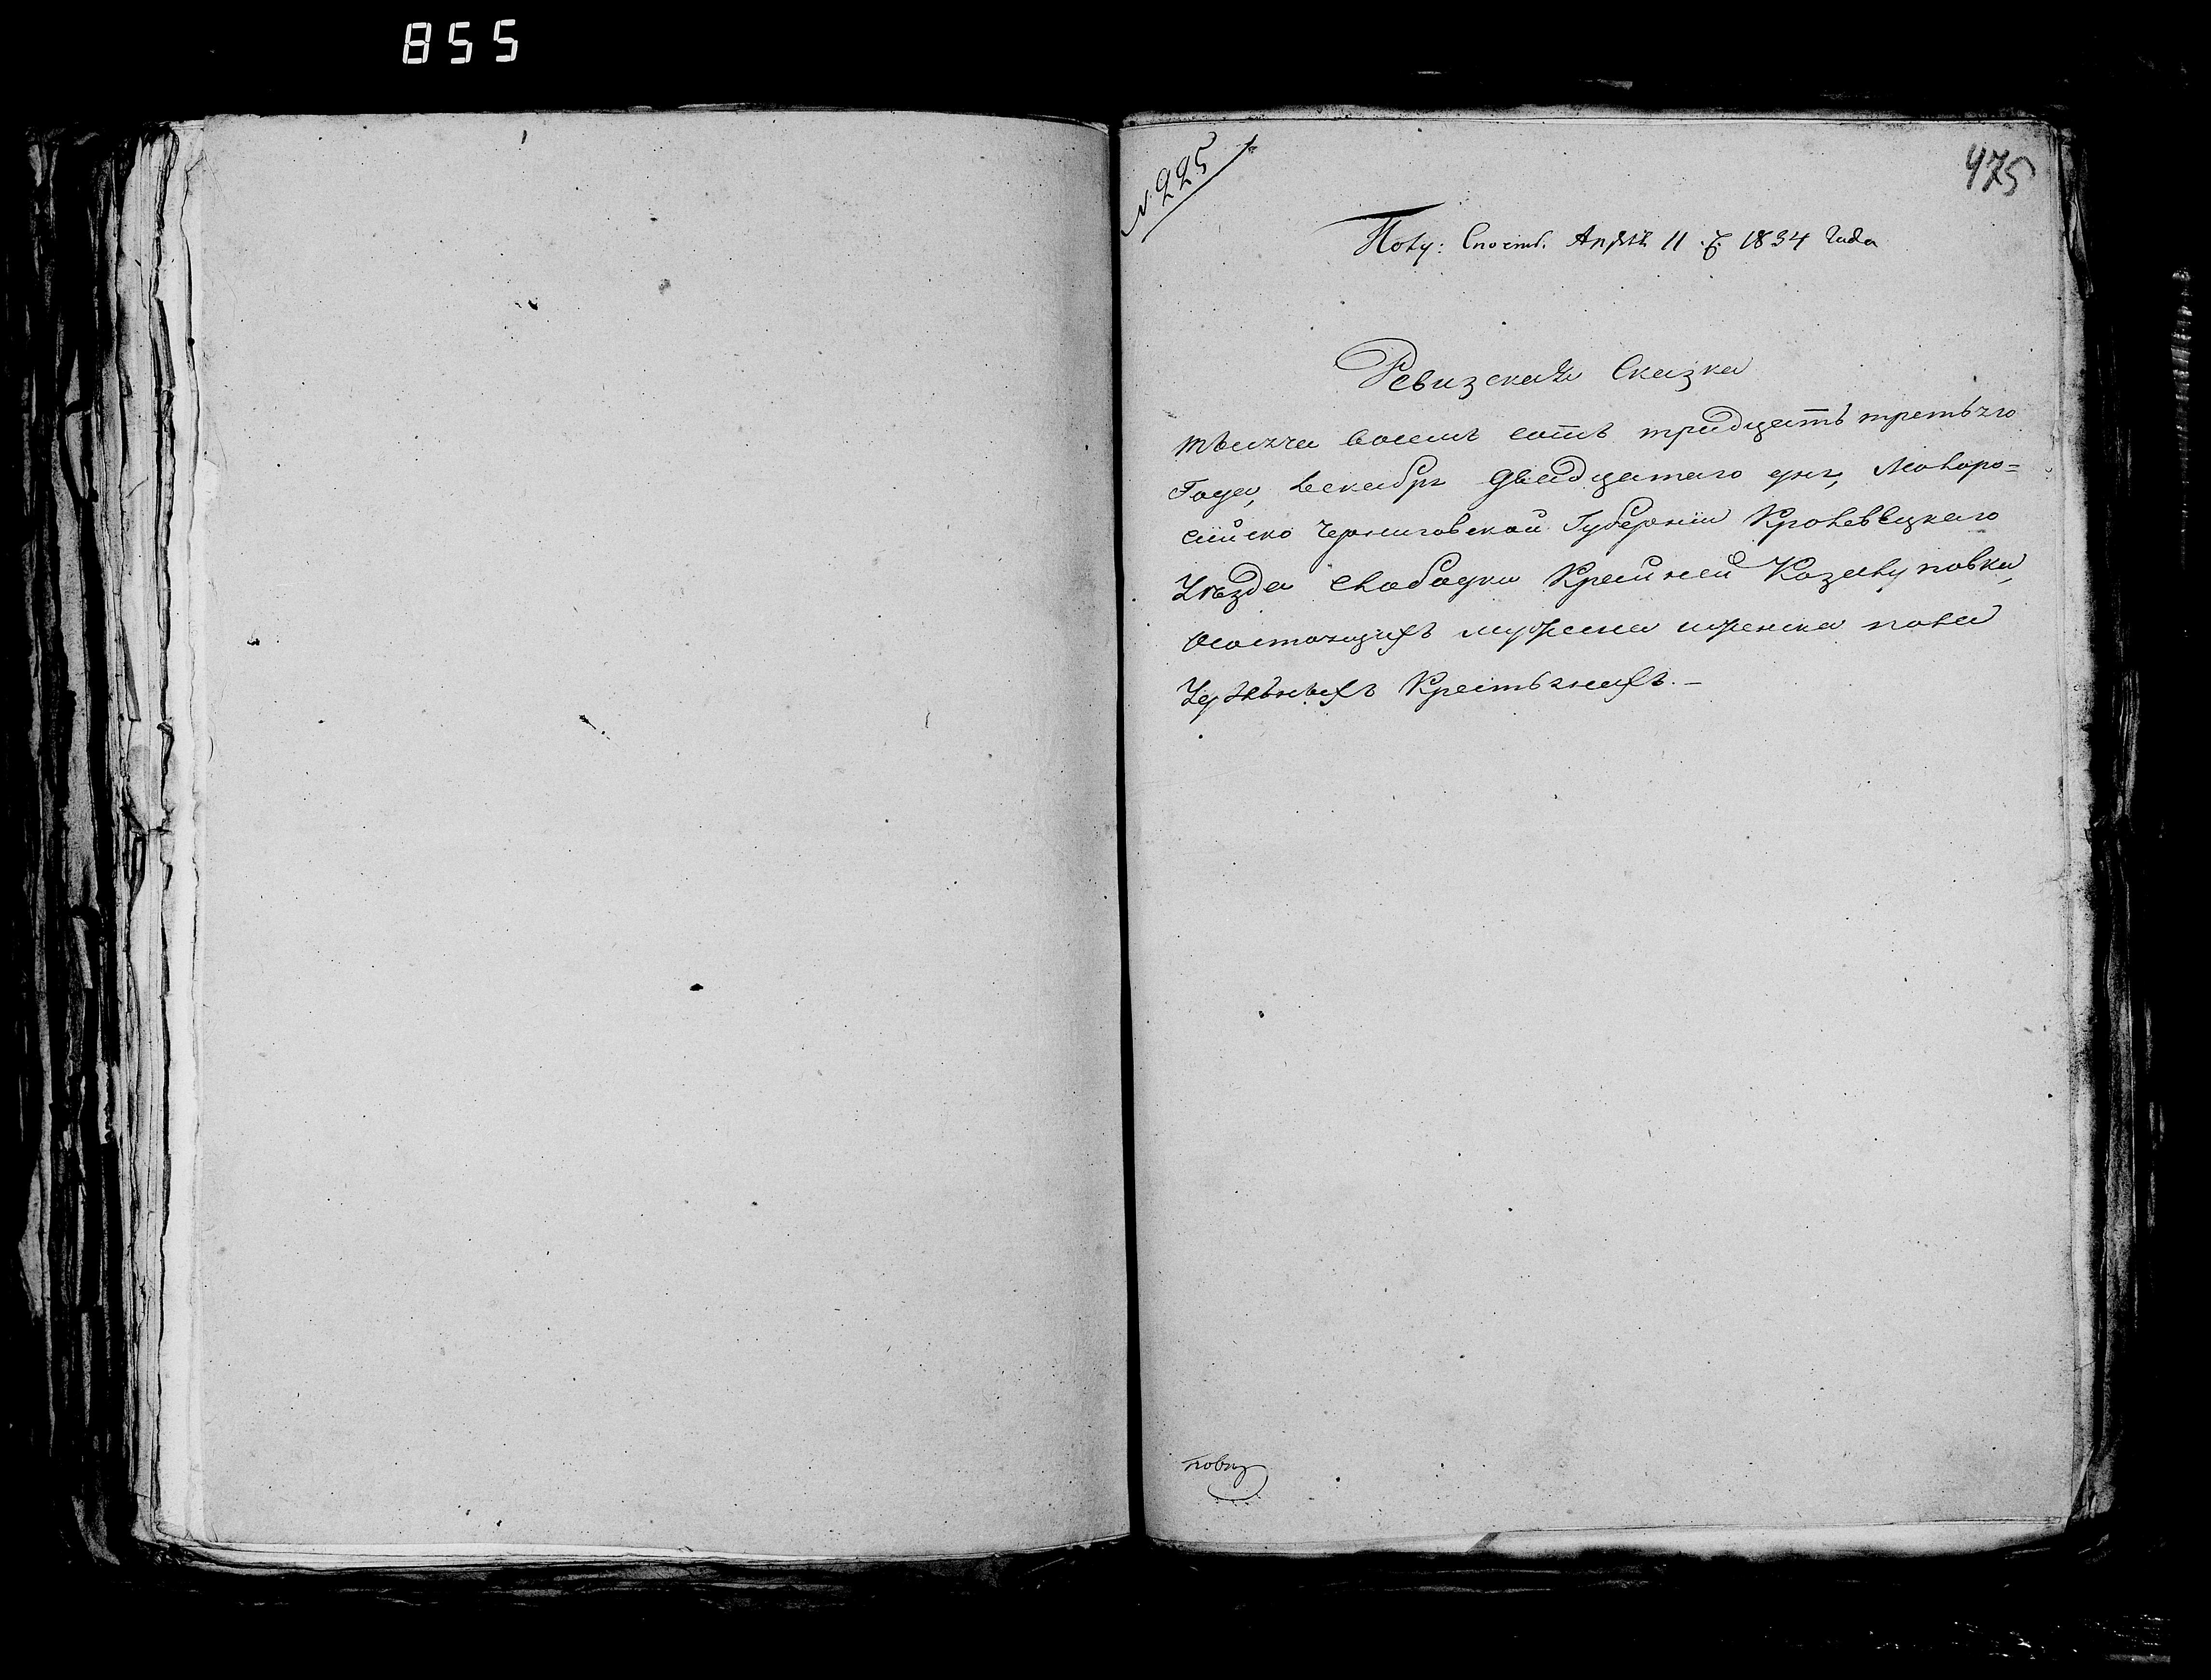 855
№ 225
475
Полу: Апреля 11 . 1834 Года
Ревизская Сказка
тысяча восемь сотъ тридцатъ третьяго
Года, Декабря двадцатаго дня, Малоро=
сійско Черниговской Губерніи Кролевецкаго
Уезда слабадки Крайней Козалуповки,
о состоящихъ мужеска ижеска пола
Крестьянахъ. —